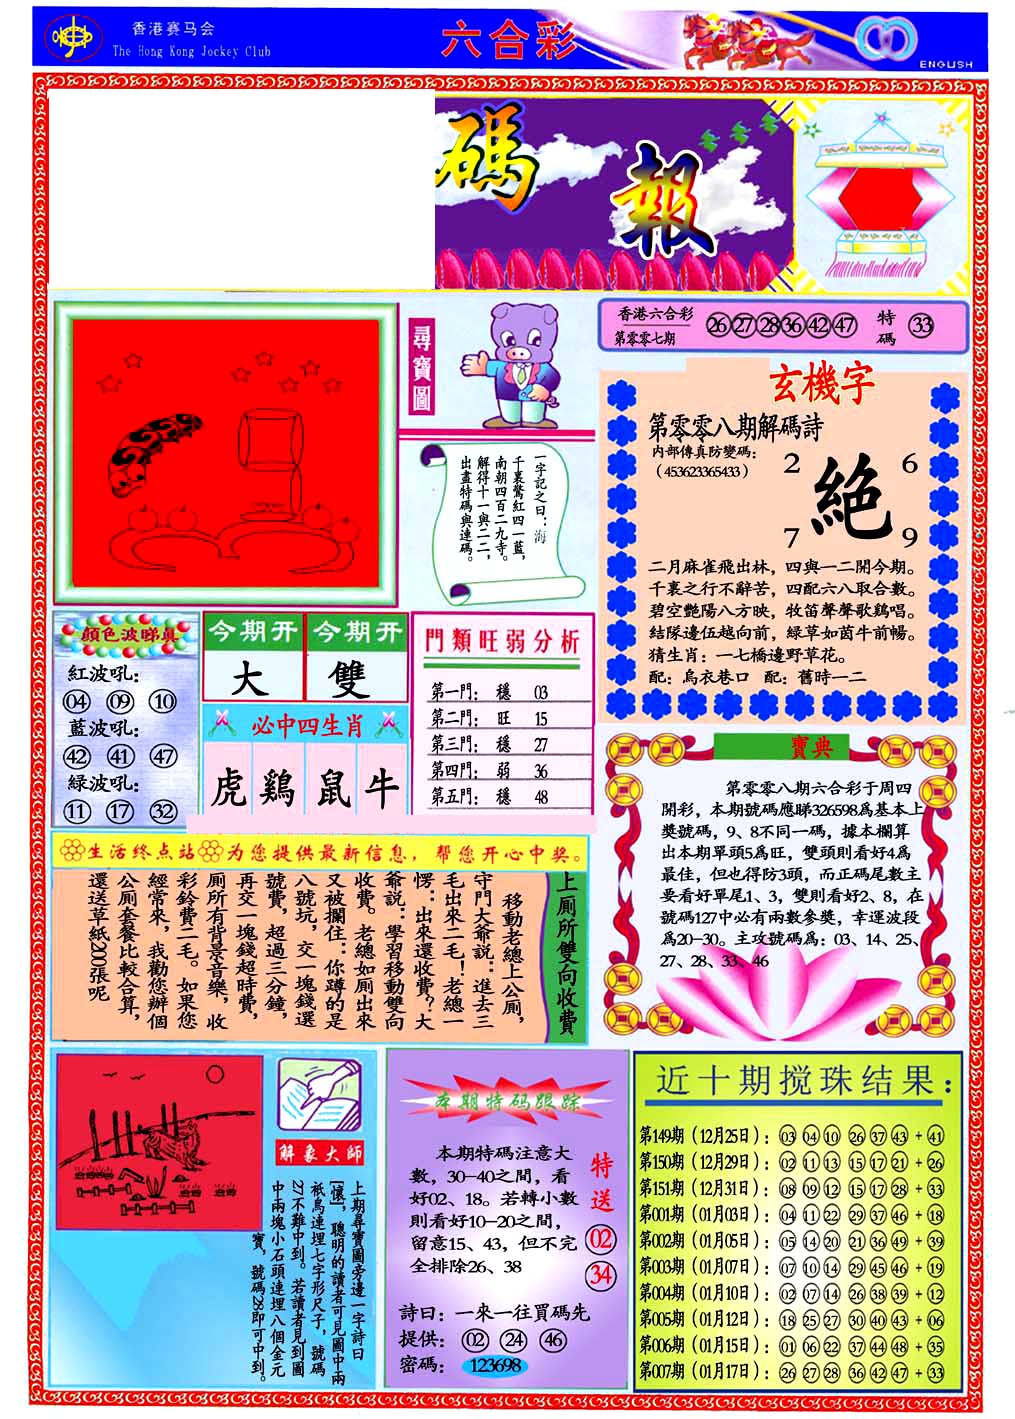 香港赛马会
The Hong Kong Jockey Club
六合彩
ENGLISH
碼報
尋寶圖
香港六合彩
第零零七期
26 27 28 36 42 47 特碼 33
一字記之曰：海
千裏鶯紅四一藍，
南朝四百二九寺。
解得十一與二二，
出盡特碼與連碼。
玄機字
第零零八期解碼詩
内部傳真防變碼：
（453623365433）
2 6
絕
7 9
二月麻雀飛出林，四與一二開今期。
千裏之行不辭苦，四配六八取合數。
碧空艷陽八方映，牧笛聲聲歌鷄唱。
結隊邊伍越向前，綠草如茵牛前暢。
猜生肖：一七橋邊野草花。
配：烏衣巷口 配：舊時一二
顏色波睇真
紅波吼：
04 09 10
藍波吼：
42 41 47
緑波吼：
11 17 32
今期开 今期开
大 雙
必中四生肖
虎 鷄 鼠 牛
門類旺弱分析
第一門： 穩 03
第二門： 旺 15
第三門： 穩 27
第四門： 弱 36
第五門： 穩 48
寶典
第零零八期六合彩于周四
開彩，本期號碼應睇326598爲基本上
獎號碼，9、8不同一碼，據本欄算
出本期單頭5爲旺，雙頭則看好4爲
最佳，但也得防3頭，而正碼尾數主
要看好單尾1、3，雙則看好2、8，在
號碼127中必有兩數參獎，幸運波段
爲20-30。主攻號碼爲：03、14、25、
27、28、33、46
生活终点站 为您提供最新信息，帮您开心中奖。
上厠所雙向收費
移動老總上公厠，
守門大爺説：進去三
毛出來二毛！老總一
愣：出來還收費？大
爺説：學習移動雙向
收費。老總如厠出來
又被攔住：你蹲的是
八號坑，交一塊錢選
號費，超過三分鐘，
再交一塊錢超時費，
厠所有背景音樂，收
彩鈴費二毛。如果您
經常來，我勸您辦個
公厠套餐比較合算，
還送草紙200張呢
解象大師
上期尋寶圖旁邊一字詩曰
[懷]，聰明的讀者可見圖中兩
衹鳥連埋七字形尺子，號碼
27不難中到。若讀者見到圖
中兩塊小石頭連埋八個金元
寶，號碼28即可中到。
本期特码跟踪
本期特碼注意大
數，30-40之間，看
好02、18。若轉小數
則看好10-20之間，
留意15、43，但不完
全排除26、38
特送
02
34
詩曰：一來一往買碼先
提供： 02 24 46
密碼： 123698
近十期搅珠结果：
第149期（12月25日）：03 04 10 26 37 43 + 41
第150期（12月29日）：02 11 13 15 17 21 + 26
第151期（12月31日）：08 09 12 15 17 28 + 33
第001期（01月03日）：04 11 22 29 37 46 + 18
第002期（01月05日）：05 14 20 21 36 49 + 39
第003期（01月07日）：07 10 14 29 45 46 + 19
第004期（01月10日）：02 07 14 26 38 39 + 12
第005期（01月12日）：18 25 27 30 40 43 + 06
第006期（01月15日）：01 06 22 37 44 48 + 35
第007期（01月17日）：26 27 28 36 42 47 + 33